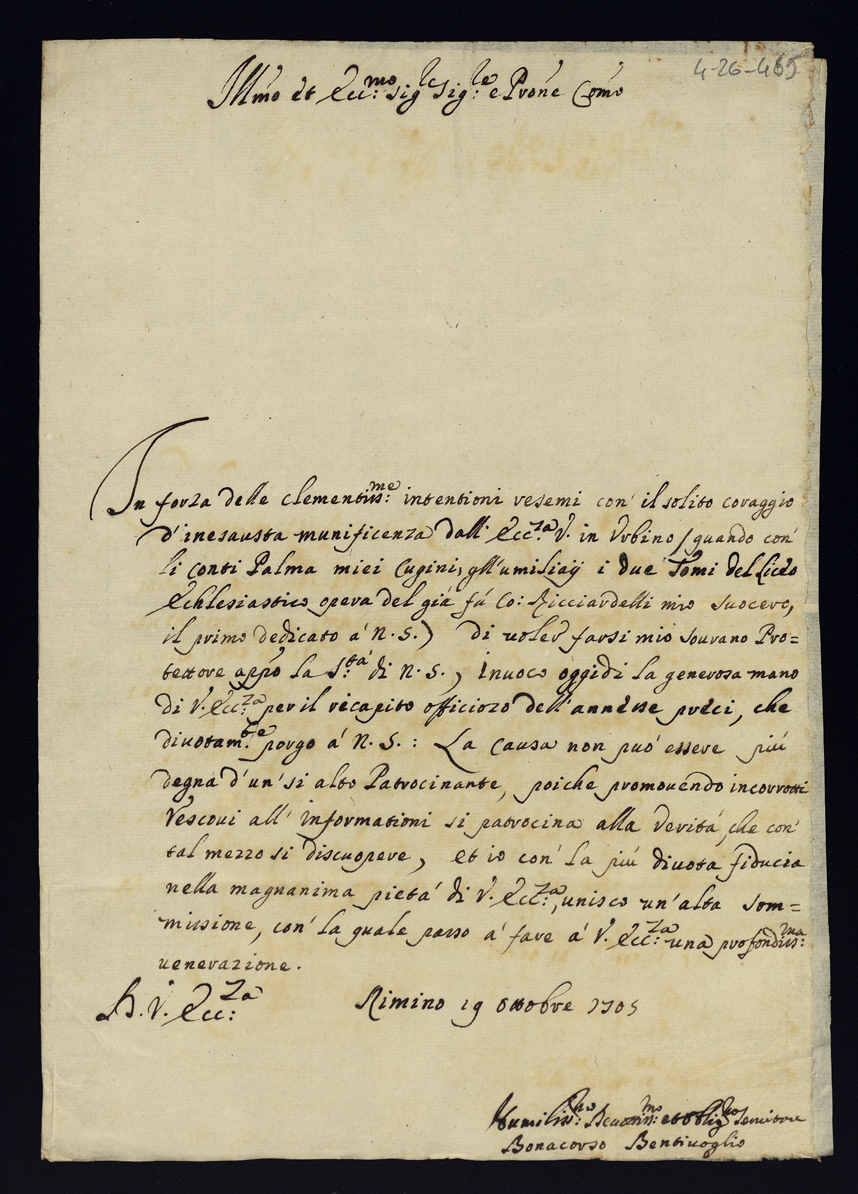 4-26-465
Ill.mo et Ecc.mo Sig.re Sig.re e Prone Como
In forza delle clementiss.me intentioni resemi con' il solito coraggio
d'inesausta munificenza dall' Ecc.za V. in Urbino (quando con'
li Conti Palma miei Cugini, gl'umiliaij i due Tomi del Liceo
Echlesiastico opera del già fú Co: Ricciardelli mio suocero,
il primo dedicato á N. S.) di voler farsi mio sovrano Pro=
tettore appo la S.tá di N. S., invoco oggidì la generosa mano
di V. Ecc.za per il recapito officioso dell'annesse preci, che
divotam.te porgo á N. S.: La causa non puó essere piú
degna d'un' si alto Patrocinante, poiche promovendo incorrotti
Vescovi all' informationi si patrocina alla veritá, che con'
tal mezzo si discuopre, et io con' la piú divota fiducia
nella magnanima pietá di V. Ecc.za, unisco un'alta som=
missione, con' la quale passo á fare á V. Ecc.za una profondiss.ma
venerazione.
D. V. Ecc.za Rimino 19 Ottobre 1705
Humiliss.mo Devotiss.mo et Oblig.mo Servitore
Bonacorso Bentivoglio